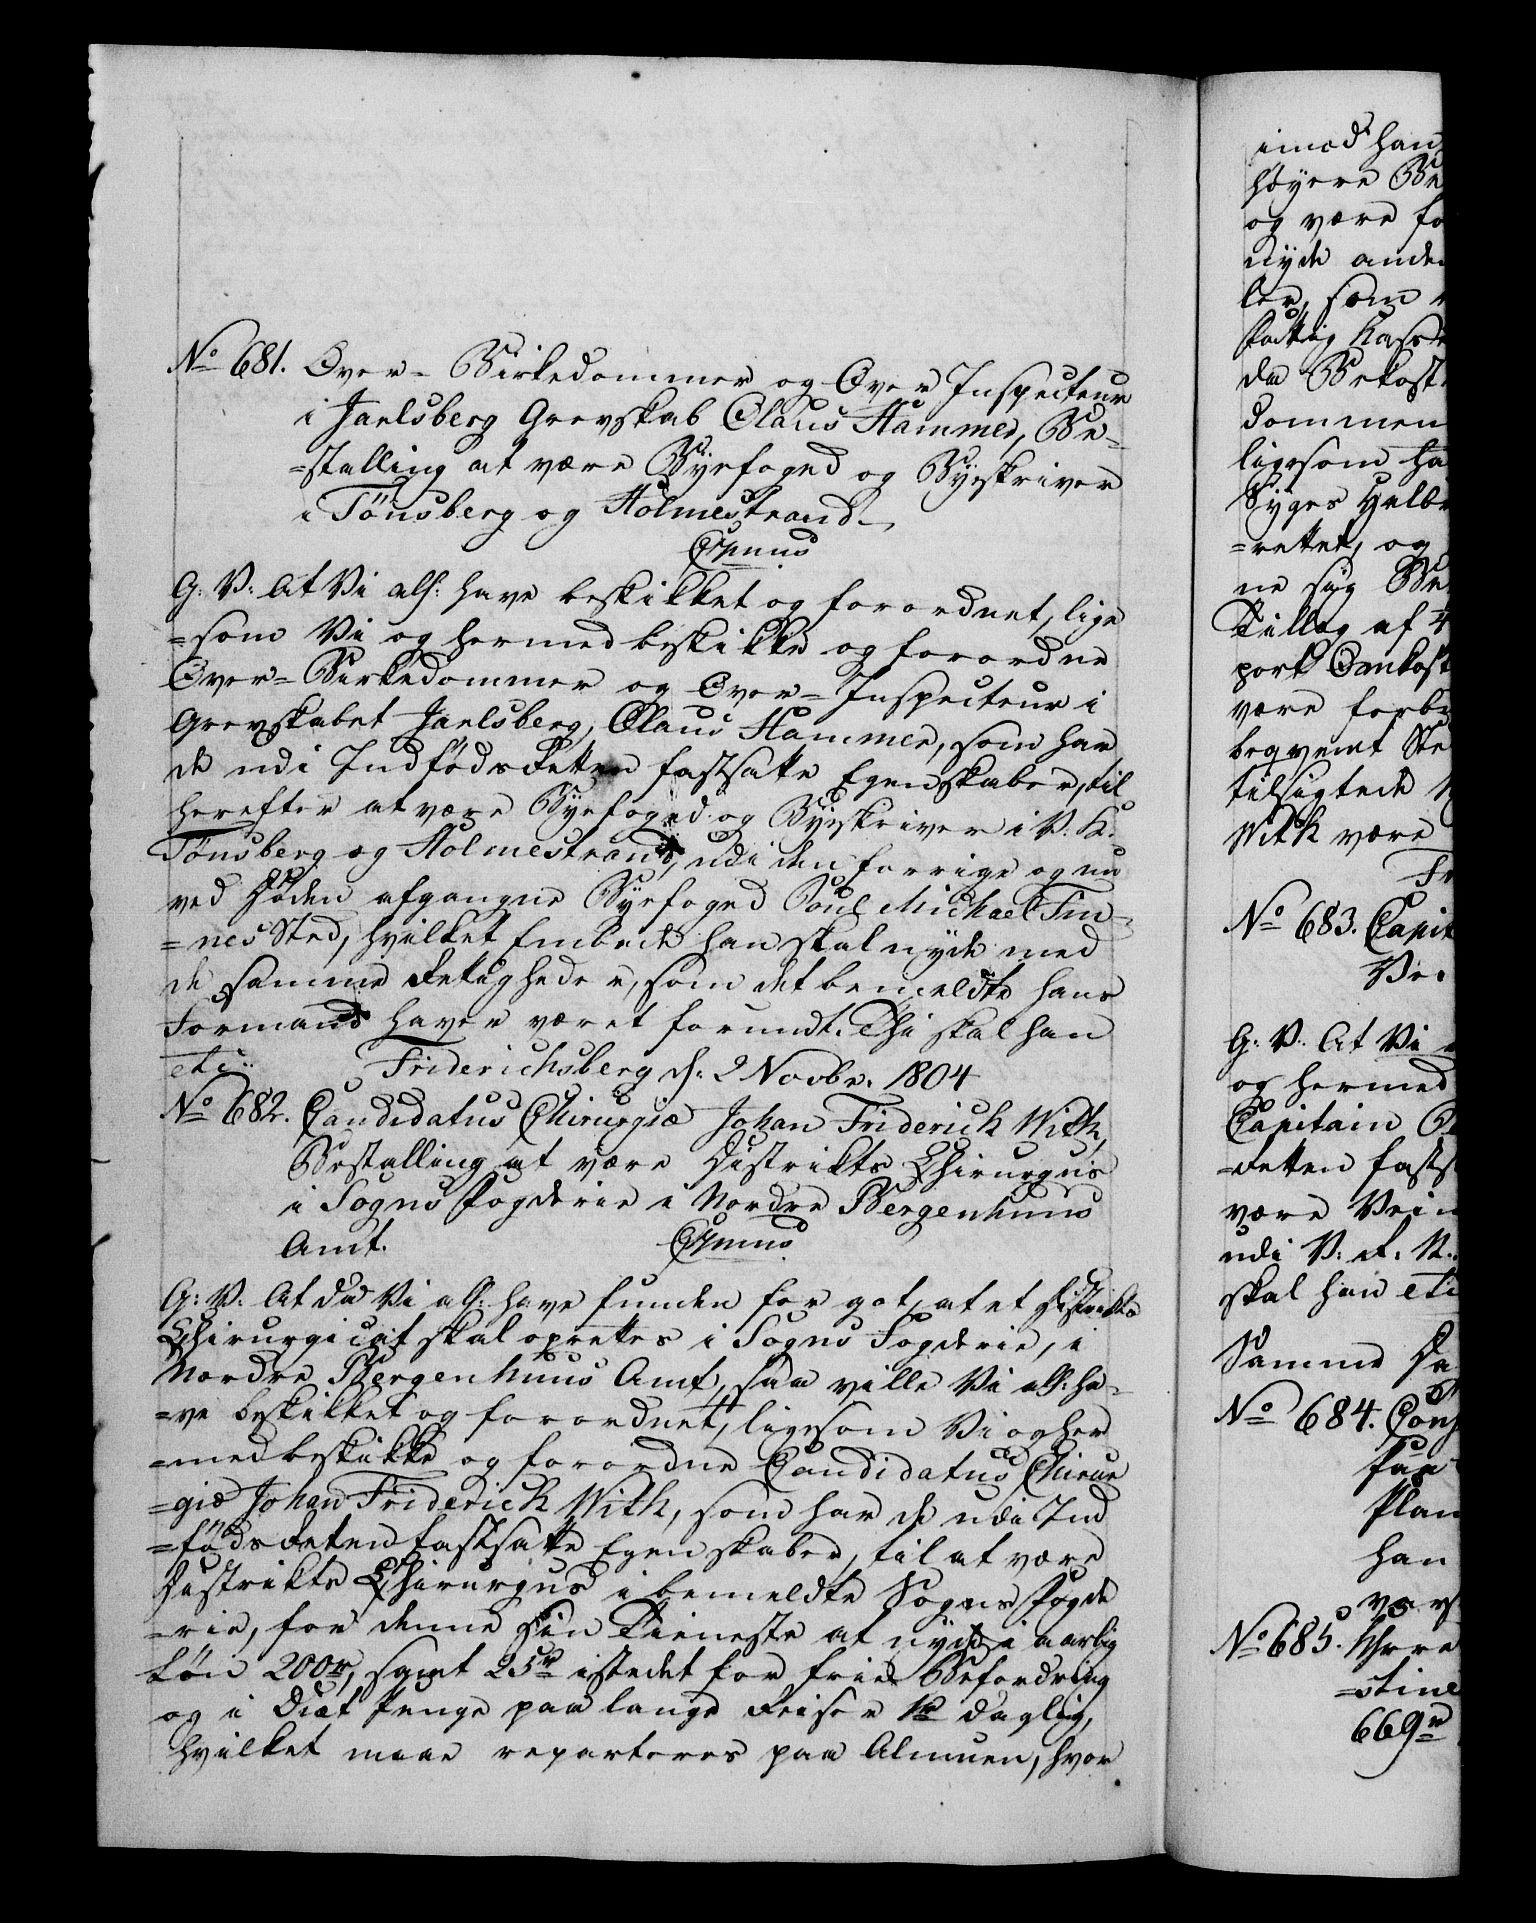 No 681. Over-Birkedommer og Over Inspecteur
i Jarlsberg Grevskab Claus Hammer, Be-
=stalling at være Byefoged og Byeskriver
i Tönsberg og Holmestrand.
Gr: V: At Vi allr: have beskikket og forordnet, lige
=som Vi og hermed beskikke og forordne
Over=Birkedommer og Over=Inspecteur i
Grevskabet Jarlsberg, Claus Hammer, som har
de udi Indfödsretten fastsatte Egenskaber, til
herefter at være Byefoged og Byeskriver i V. K.
Tönsberg og Holmestrand, udi den forrige og nu
ved Döden afgangne Byefoged Poul Michael Fin-
=nes Sted, hvilket Embede han skal nyde med
de samme Rettigheder, som det bemeldte hans
Formand haver været forundt. Thi skal han
etc: Friderichsberg d: 2 Novbr. 1804
No 682. Candidatus Chirurgiæ Johan Friderich With,
Bestalling at være Distrikts Chirurgus
i Sogns Fogderie i Nordre Bergenhuus
Amt.
G: V: At da Vi allr: have funden for got, at et Distrikts
Chirurgicat skal oprettes i Sogns Fogderie, i
Nordre Bergenhuus Amt, saa ville Vi allr: ha-
=ve beskikket og forordnet, ligesom Vi og her
=med beskikke og forordne Candidatus Chirur
=giæ Johan Friderich With, som har de udi Ind
=födsretten fastsatte Egenskaber, til at være
Distrikts Chirurgus i bemeldte Sogns Fogde
=rie, for denne sin Tieneste at nyde i aarlig
Lön 200r, samt 25r istedet for frie Befordring
og i Diæt Penge paa lange Reiser 1r daglig,
hvilket maae reparteres paa Almuen, hvor
imod han
höyere Be
og være fo
nyde anden
ler, som
Fattig Kasse
da Bekost
dommen
ligesom ha
Syges Helbr
=rettet, og
ne sig Be
Tillæg af 4
port Omkost
være forbu
beqvemt Ste
tilsigtede
With være
Fr
No 683. Capit
Ve.
G: V: At Vi
og hermed
Capitain
=retten fasts
være Vein
udi V: R: N.
skal han etc
Samme Da
No 684. Cons
Paa
Plan
han
No 685.
=stine
669r